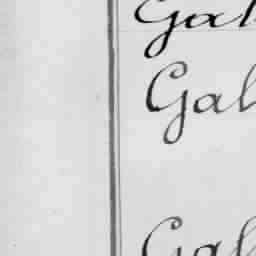 Gal
Gal
Gal